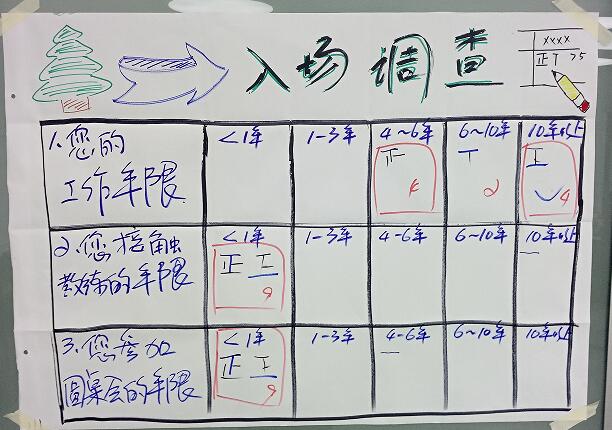 入场调查
XXXX
正丅 75
1、您的
工作年限
<1年
1-3年
4~6年
正
4
6~10年
丅
2
10年以上
4
2、您接触
教练的年限
<1年
正
9
1-3年
4-6年
6~10年
10年以上
一
3、您参加
圆桌会的年限
<1年
正
9
1-3年
4-6年
一
6~10年
10年以上